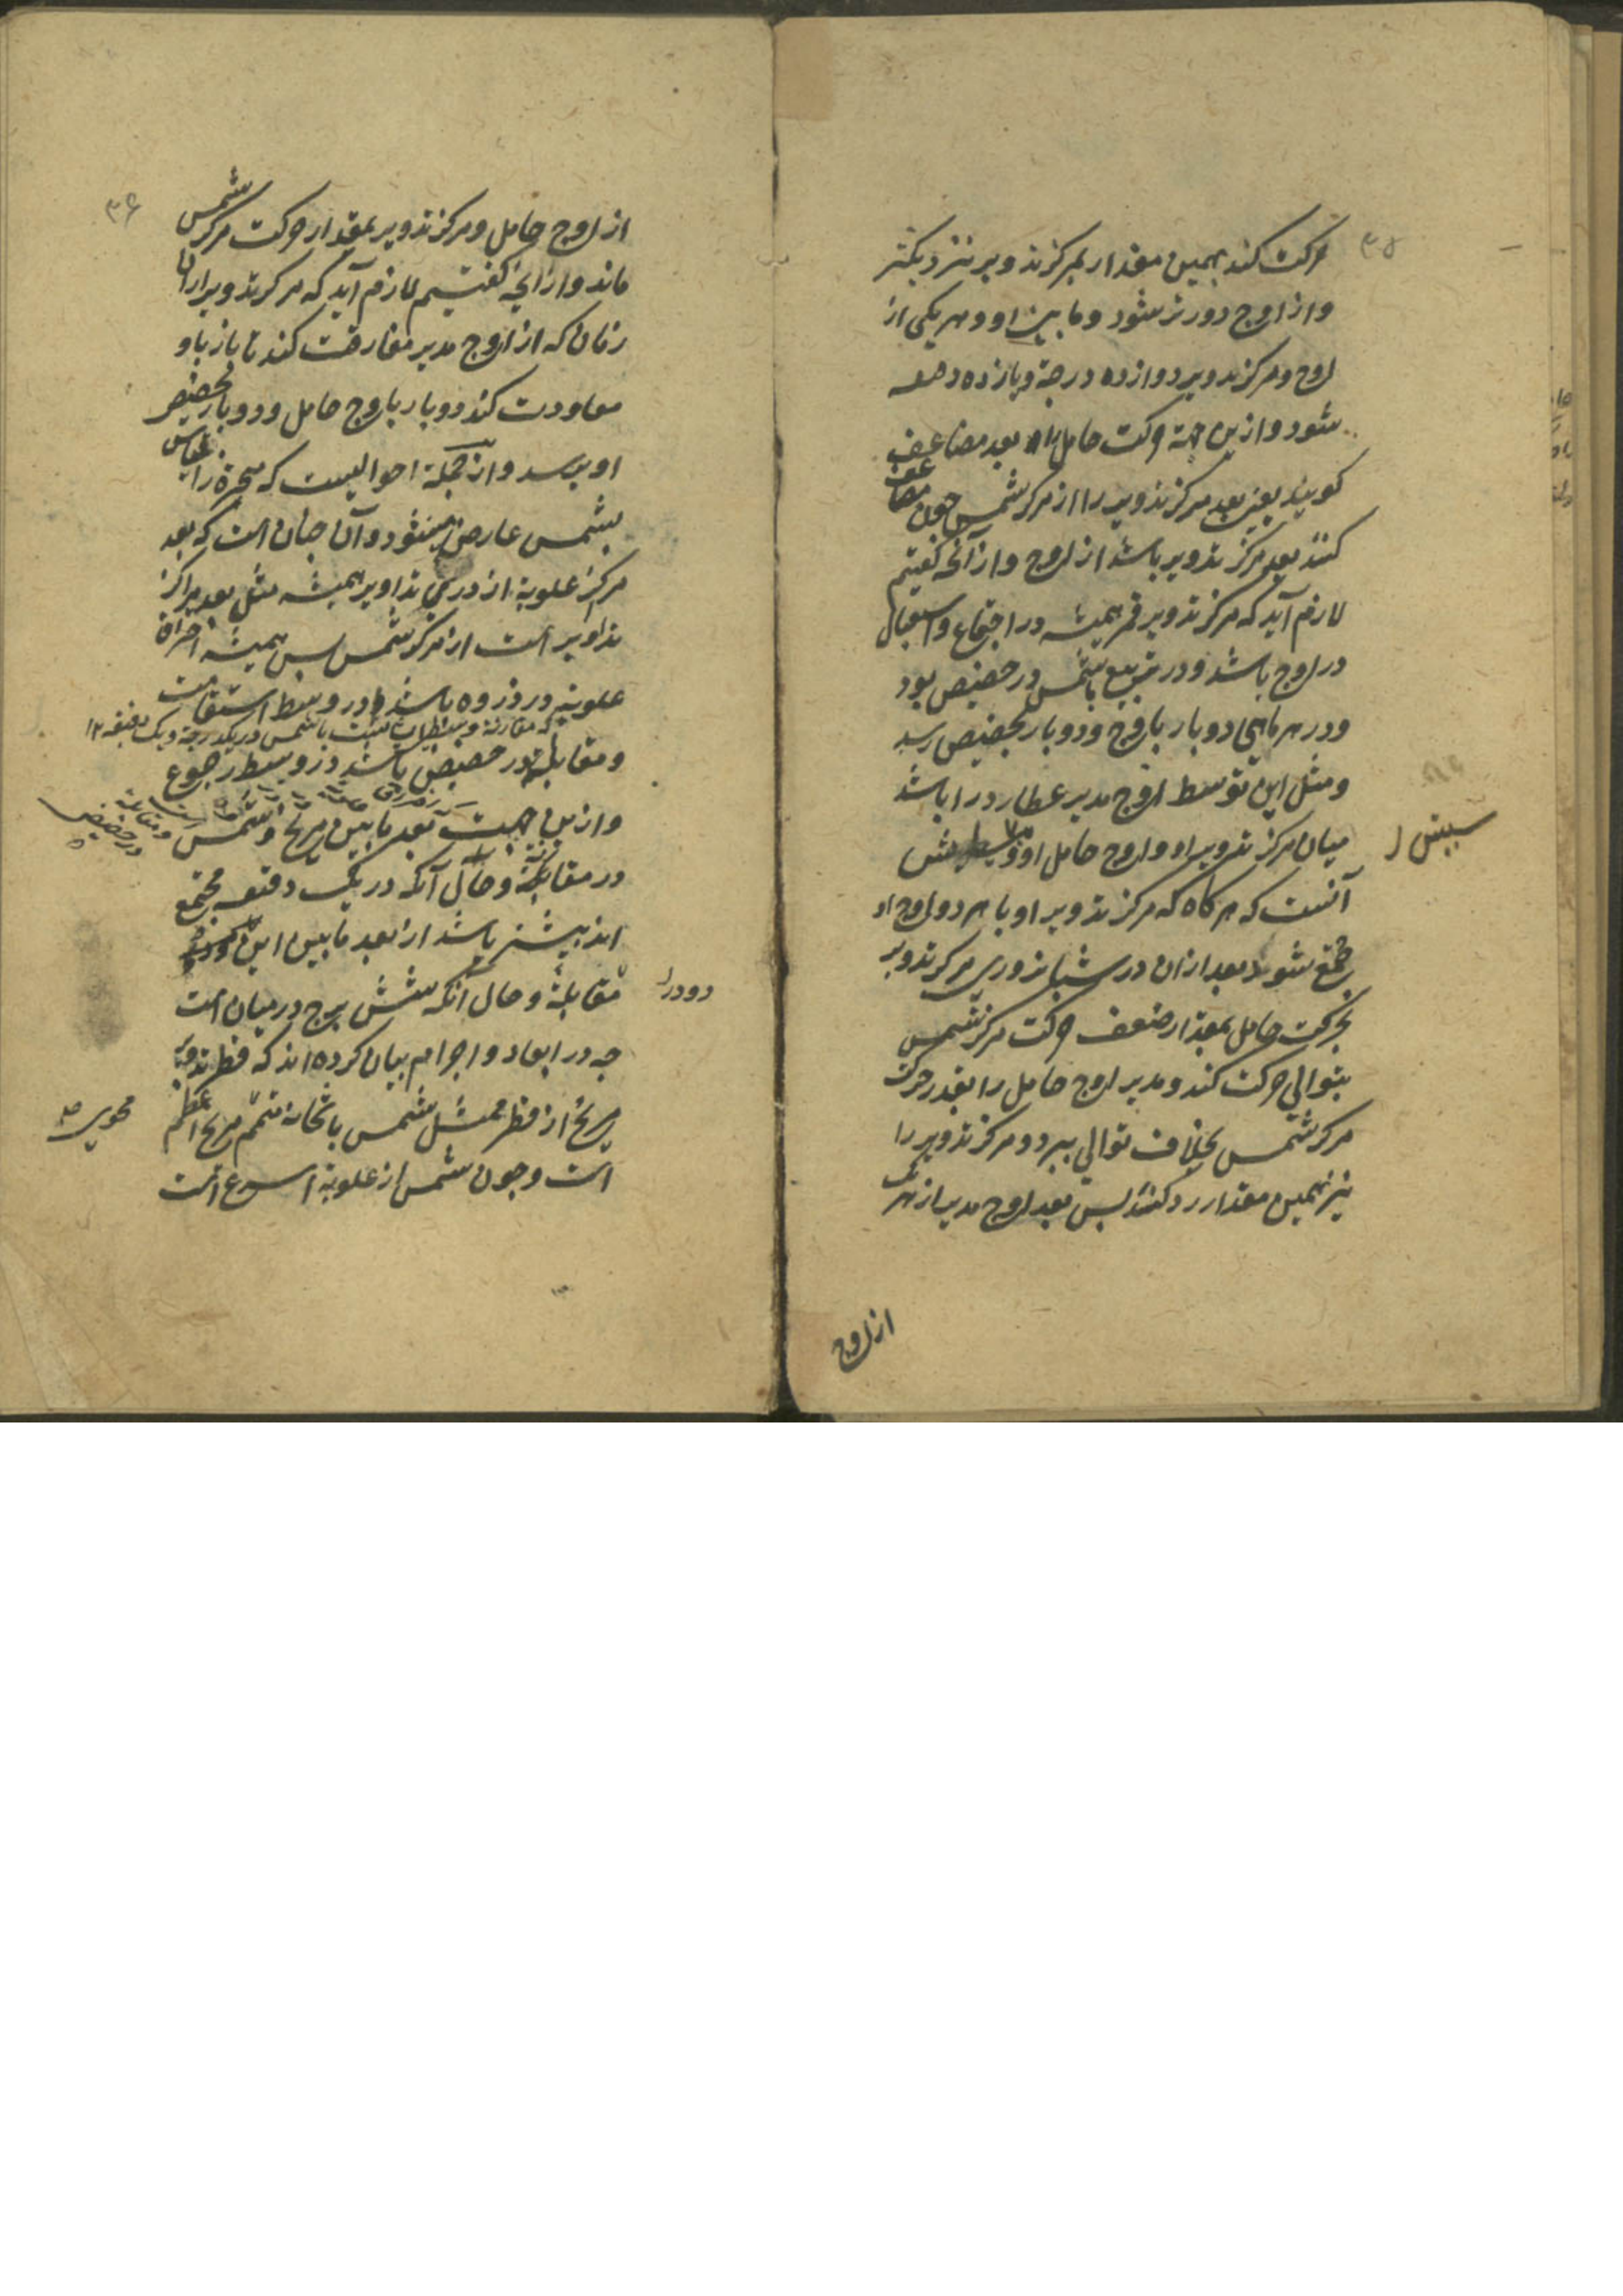 ۳۵
حرکت کند بهمین مقدار بمرکز تدویر نزدیکتر
و از اوج دورتر شود و ما بین او و هر یکی از
اوج و مرکز تدویر دوازده درجه و یازده دقیقه
شود و ازین جهة حرکت حامل را بعد مضاعف
کویند یعنی بعد مرکز تدویر را از مرکز شمس چون مضاعف
کنند بعد مرکز تدویر باشد از اوج و از آنچه کفتیم
لازم آید که مرکز تدویر قمر همیشه در اجتماع و استقبال
در اوج باشد و در تربیع با شمس در حضیض بود
و در هر ماهی دو بار باوج و دو بار بحضیض رسد
و مثل این توسط اوج مدیر عطارد را باشد
میان مرکز تدویر او و اوج حامل او و
آنست که هر کاه که مرکز تدویر او با هر دو اوج او
مجتمع شود بعد ازان در شبانروزی مرکز تدویر
بحرکت حامل بمقدار ضعف حرکت مرکز شمس
بتوالی حرکت کند و مدیر اوج حامل را بقدر حرکت
مرکز شمس بخلاف توالی ببرد و مرکز تدویر را
نیز بهمین مقدار رد کند پس بعد اوج مدیر از هر یک
از اوج
۳۶
از اوج حامل و مرکز تدویر بمقدار حرکت مرکز شمس
ماند و از آنچه کفتیم لازم آید که مرکز تدویر از آن
زمان که از اوج مدیر مفارقت کند تا باز باو
معاودت کند دو بار باوج حامل و دو بار بحضیض
او برسد و از آن جمله احوالیست که متحیره را بقیاس
بشمس عارض میشود و آن چنان است که بعد
مرکز علویه از ذری تداویر همیشه مثل بعد مراکز
تداویر است از مرکز شمس پس همیشه احتراق
علویه در ذروه باشد و در وسط استقامت
و مقابله در حضیض باشد در وسط رجوع
و ازین جهت بعد ما بین مریخ و شمس
در مقارنه و حال آنکه در یک دقیقه مجتمع
اند بیشتر باشد از بعد ما بین این
مقابلة و حال آنکه شش برج در میان است
دو در
چه در ابعاد و اجرام بیان کرده اند که قطر تدویر
مریخ از قطر ممثل شمس با ثخانة متمم مریخ اعظم
است و چون شمس از علویة اسرع است